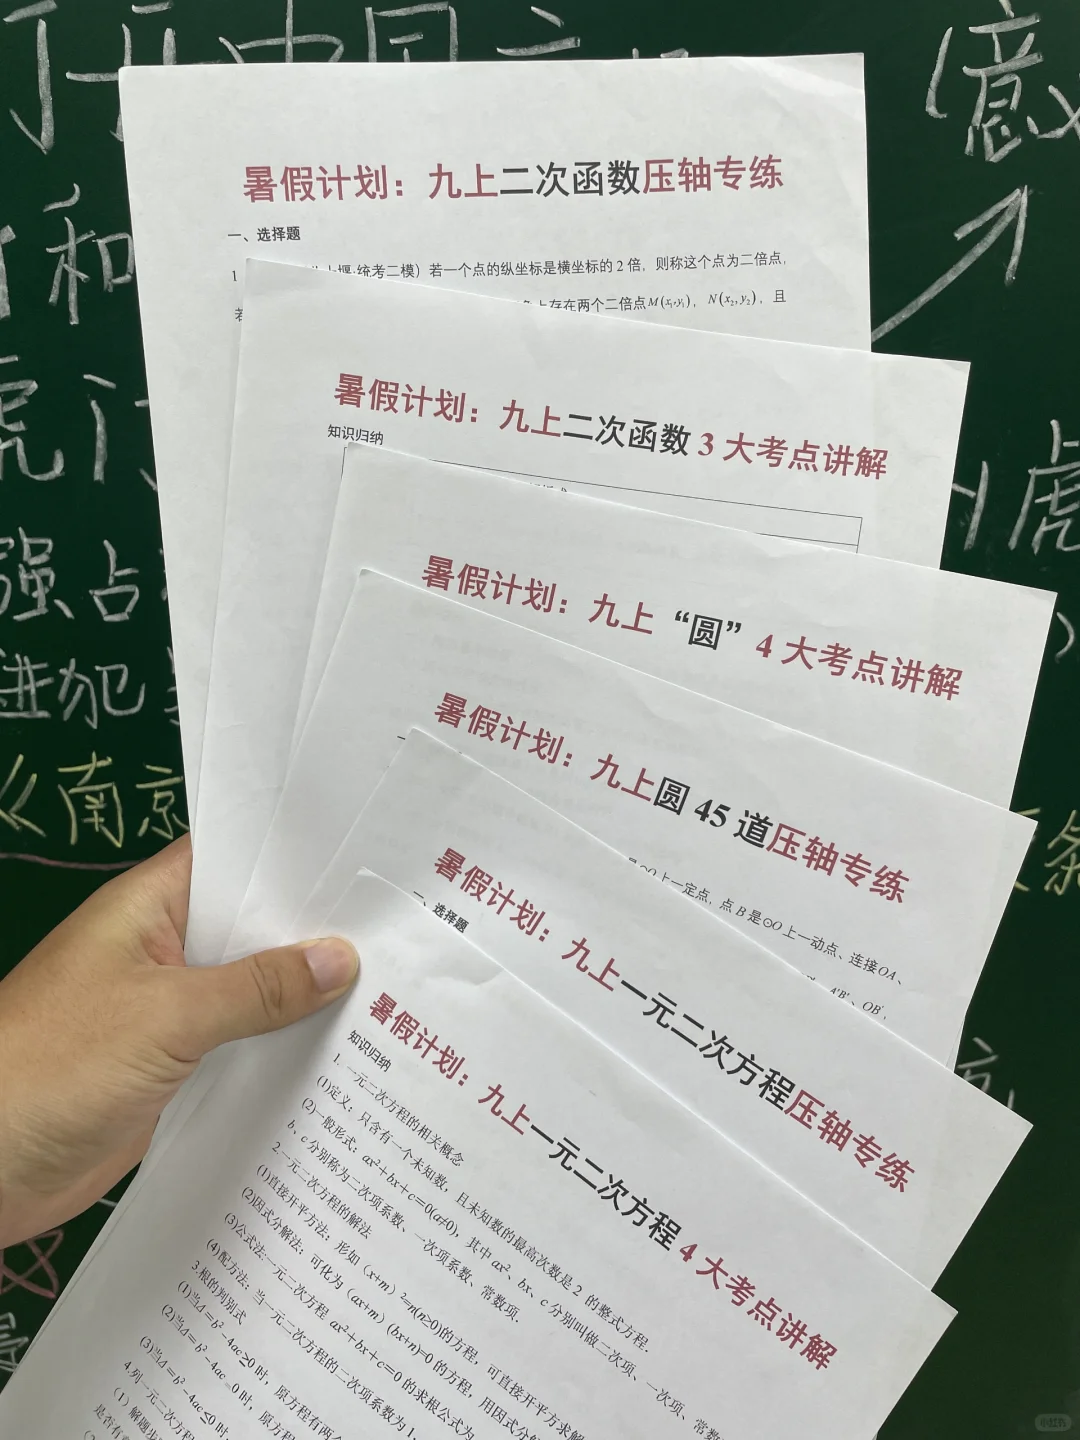 和
强占
进犯
《南京
虎
暑假计划：九上二次函数压轴专练
一、选择题
统考二模）若一个点的纵坐标是横坐标的2倍，则称这个点为二倍点，
上存在两个二倍点M(x₁,y₁)，N(x₂,y₂)，且
暑假计划：九上二次函数3大考点讲解
知识归纳
暑假计划：九上“圆”4大考点讲解
暑假计划：九上圆45道压轴专练
上一定点，点B是⊙O上一动点、连接OA、
A'B'、OB'，
暑假计划：九上一元二次方程压轴专练
一、选择题
暑假计划：九上一元二次方程4大考点讲解
知识归纳
1. 一元二次方程的相关概念
(1)定义：只含有一个未知数，且未知数的最高次数是2 的整式方程．
(2)一般形式：ax²＋bx＋c＝0(a≠0)，其中 ax²、bx、c 分别叫做二次项、一次项、常数
b、c 分别称为二次项系数、一次项系数、常数项．
2.一元二次方程的解法
(1)直接开平方法：形如（x+m）²=n(n≥0)的方程，可直接开平方求解
(2)因式分解法：可化为（ax+m）(bx+n)=0 的方程，用因式分
(3)公式法:一元二次方程 ax²＋bx＋c＝0 的求根公式为
(4)配方法：当一元二次方程的二次项系数为1，
3.根的判别式
(1)当Δ＝b²-4ac≥0 时，原方程有两
(2)当Δ＝b²-4ac=0 时，原方程
(3)当Δ＝b²-4ac≤0 时
4.列一元二次方程
（1）解题步
是否有
小红书